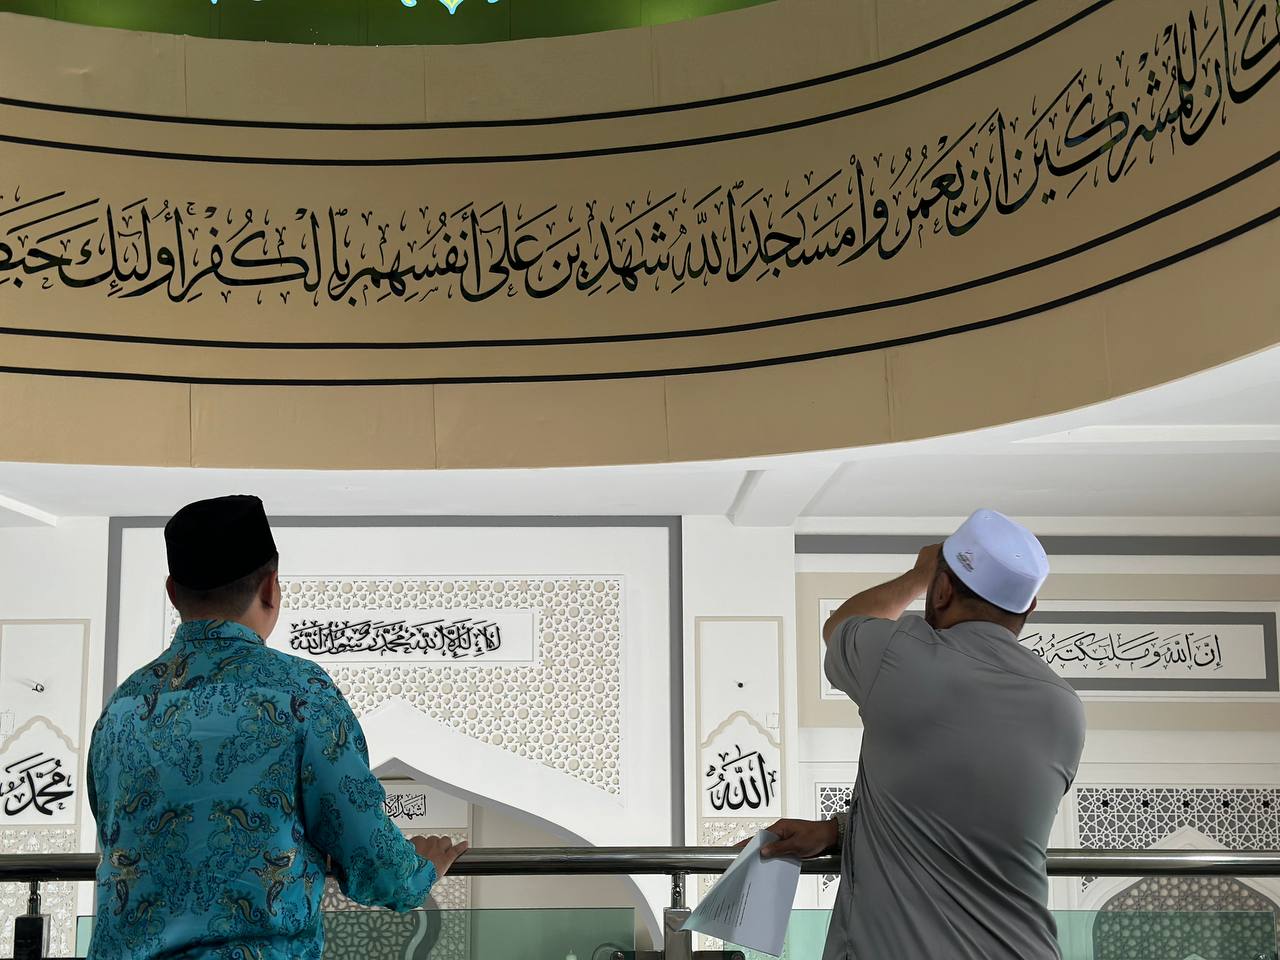 كَانَ لِلْمُشْرِكِينَ أَن يَعْمُرُوا۟ مَسَـٰجِدَ ٱللَّهِ شَـٰهِدِينَ عَلَىٰٓ أَنفُسِهِم بِٱلْكُفْرِ ۚ أُو۟لَـٰٓئِكَ حَبِطَ
لا إله إلا الله محمد رسول الله
إن الله وملائكته
محمد
الله
أشهد أن لا